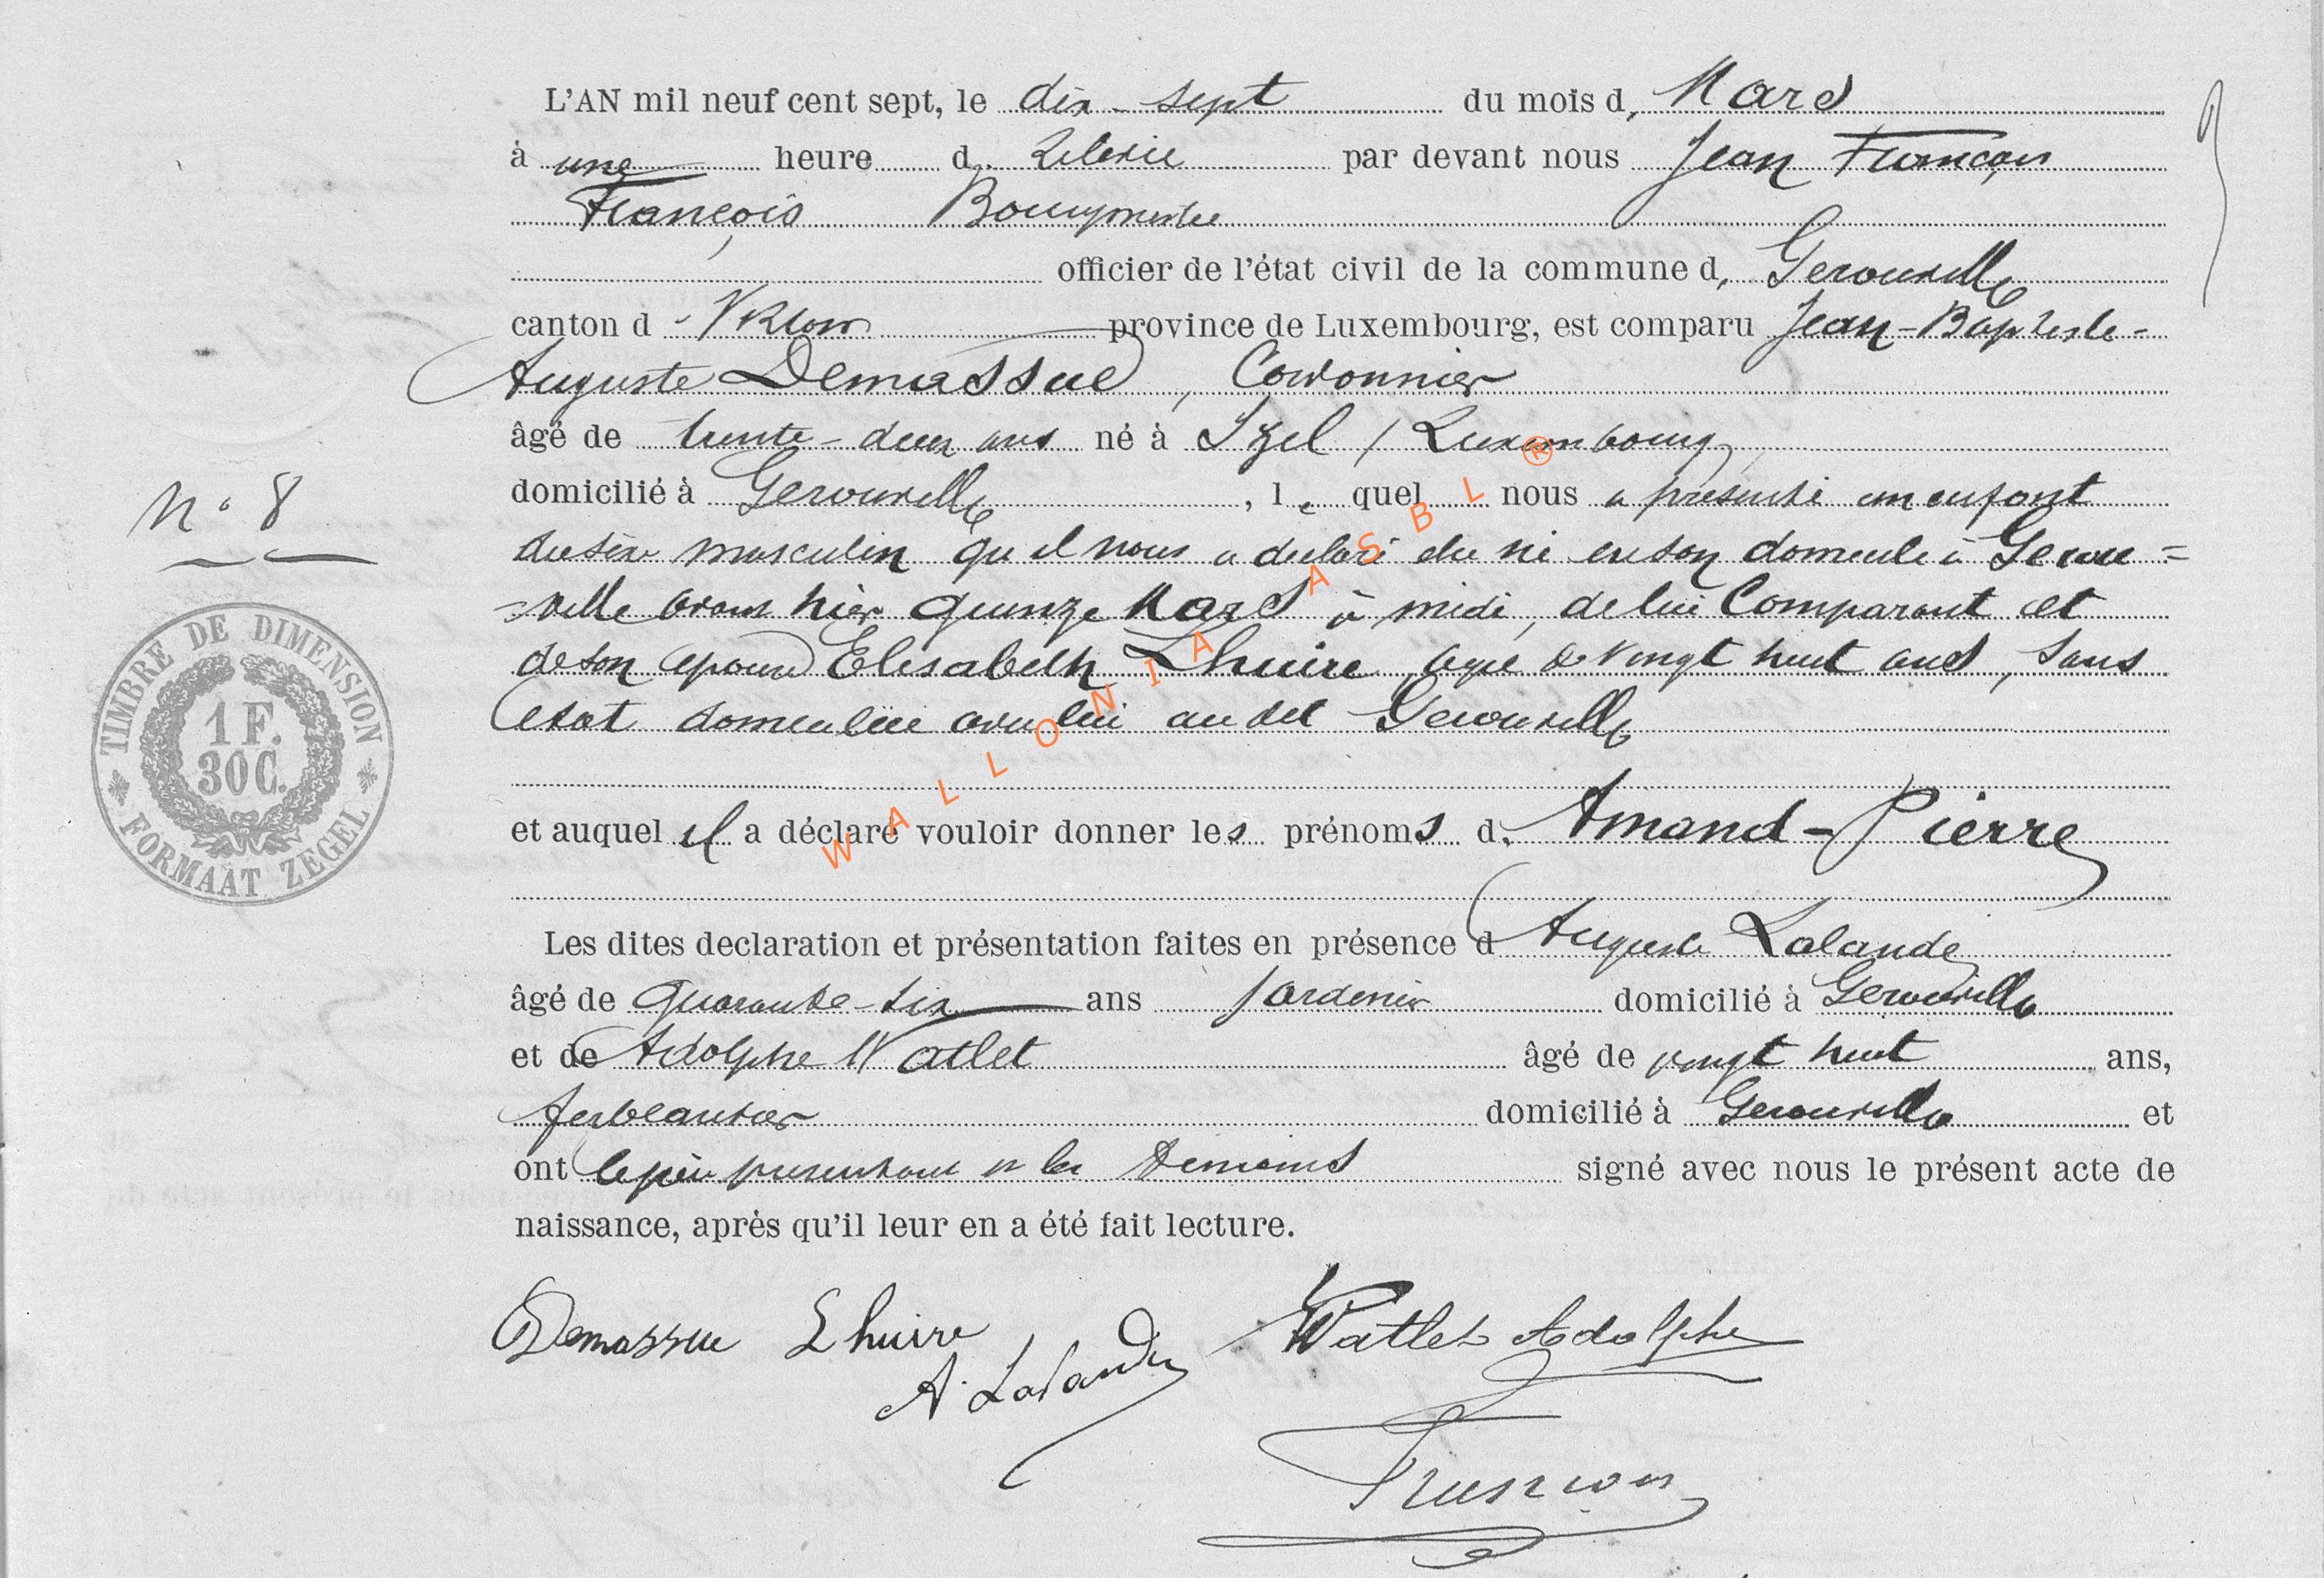 L'AN mil neuf cent sept, le dix-sept du mois d, Mars
à une heure d. relevée par devant nous Jean François
François Bourgmestre
officier de l'état civil de la commune d, Gerouville
canton d Virton province de Luxembourg, est comparu Jean-Baptiste-
Auguste Demassue, Cordonnier
âgé de trente-deux ans né à Izel / Luxembourg
domicilié à Gerouville, le quel nous a présenté un enfant
N° 8
du sexe masculin qu'il nous a déclaré être né en son domicile à Gerou=
=ville avant hier quinze Mars à midi, de lui Comparant et
de son épouse Elisabeth Lhuire agée de vingt huit ans, sans
état domiciliée avec lui au dit Gerouville
et auquel il a déclaré vouloir donner les prénoms d, Amand-Pierre
Les dites declaration et présentation faites en présence d Auguste Lalande
âgé de quarante-six ans jardinier domicilié à Gerouville
et de Adolphe Watlet âgé de vingt huit ans,
ferblantier domicilié à Gerouville et
ont le père présentant et les témoins signé avec nous le présent acte de
naissance, après qu'il leur en a été fait lecture.
Demassue Lhuire Watlet Adolphe
A. Lalande
François
TIMBRE DE DIMENSION
1 F.
30 C.
FORMAAT ZEGEL
WALLONIA ASBL ®